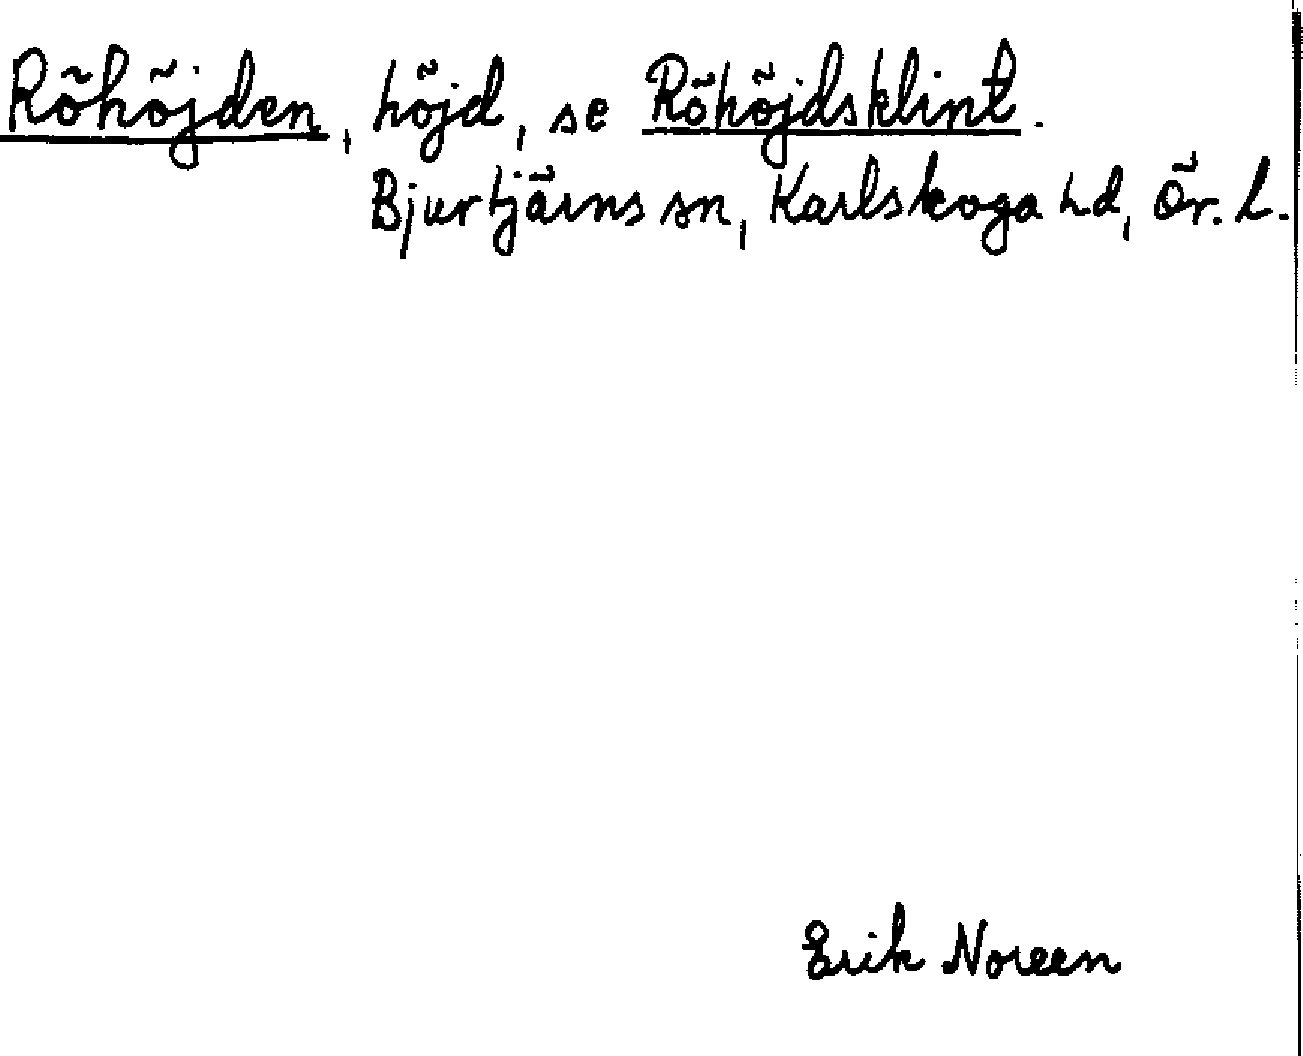 Röhöjden, höjd, se Röhöjdsklint.
Bjurtjärns sn, Karlskoga hd, Ör. l.
Erik Noreen